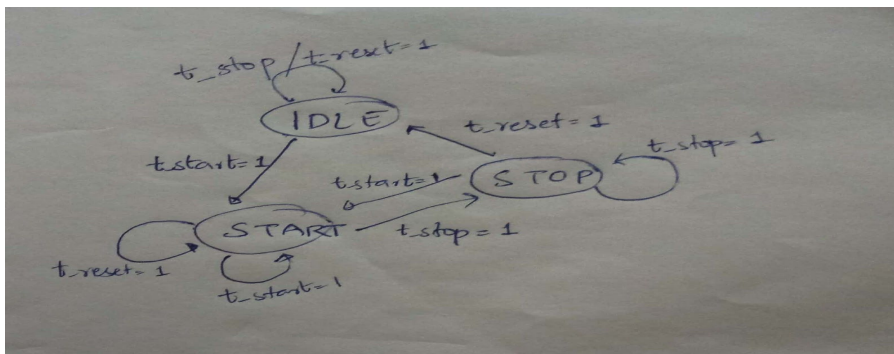 t_stop/t_reset=1
IDLE
t_reset=1
t_stop=1
t_start=1
t_start=1
STOP
START
t_stop=1
t_reset=1
t_start=1